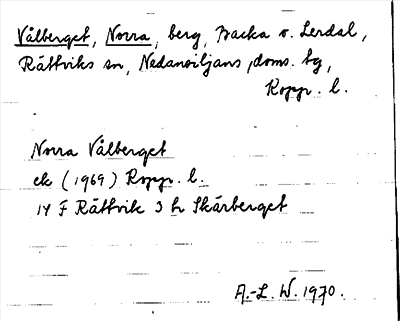 Vålberget, Norra, berg, Backa o. Lerdal,
Rättviks sn, Nedansiljans doms. tg,
Kopp. l.
Norra Vålberget
ek (1969) Kopp. l.
14 F Rättvik 3 h Skärberget
A.-L. W. 1970.